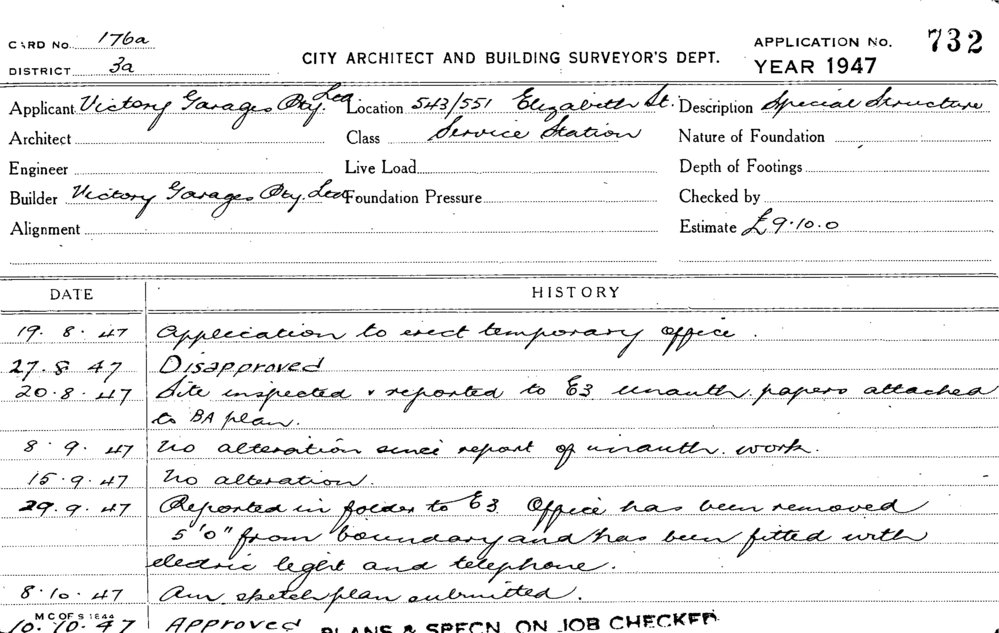 CARD No. 176a
DISTRICT 3a
CITY ARCHITECT AND BUILDING SURVEYOR'S DEPT.
APPLICATION No. 732
YEAR 1947
Applicant Victory Garages Pty. Ltd Location 543/551 Elizabeth St. Description Special Structure
Architect Class Service Station Nature of Foundation
Engineer Live Load Depth of Footings
Builder Victory Garages Pty. Ltd Foundation Pressure Checked by
Alignment Estimate £9.10.0
DATE HISTORY
19.8.47 Application to erect temporary office.
27.8 47 Disapproved
20.8.47 Site inspected & reported to E3 unauth. papers attached
to BA plan.
8.9.47 No alteration since report of unauth. work.
15.9.47 No alteration.
29.9.47 Reported in folder to E3. Office has been removed
5'0" from boundary and has been fitted with
electric light and telephone.
8.10.47 Am. sketch plan submitted.
M C OF S 1844
10.10.47 Approved PLANS & SPECN. ON JOB CHECKED